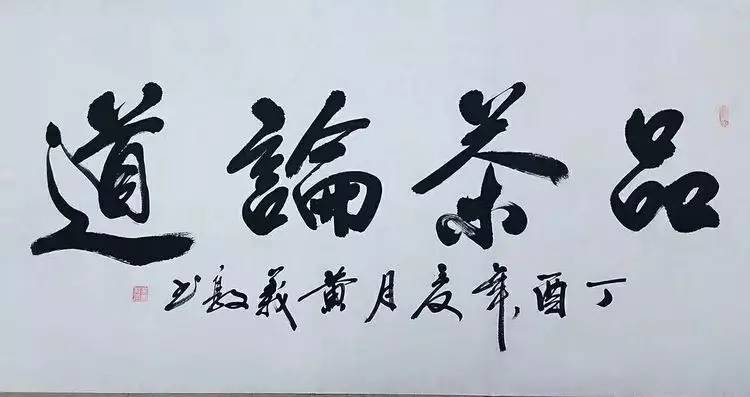 品茶論道
丁酉年夏月黄義敭书